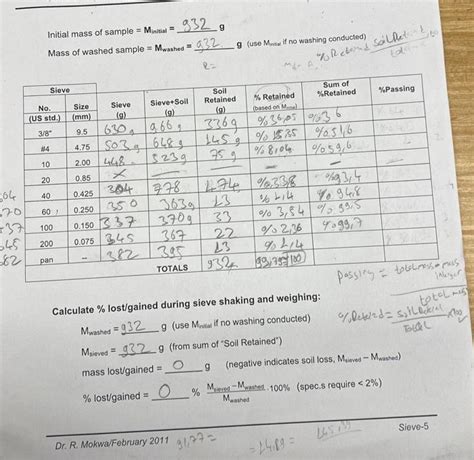 Initial mass of sample = Minitial = 932 g
Mass of washed sample = Mwashed = 932 g (use Minitial if no washing conducted)
% Retained Soil Retained
Sieve
No. (US std.) Size (mm) Sieve (g) Sieve+Soil (g) Soil Retained (g) % Retained (based on Minitial) Sum of %Retained %Passing
3/8" 9.5 630 g 966 g 336 g % 36,05 % 36
#4 4.75 503 g 648 g 145 g % 15.55 % 51,6
10 2.00 448 523 g 75 g % 8,04 % 59,6
20 0.85 x
40 0.425 304 778 474 % 93,4
60 0.250 350 363 g 13 % 1,4 % 94,8
100 0.150 337 370 g 33 % 3,54
200 0.075 345 367 22 % 99,7
pan -- 382 395 13 % 1,4
TOTALS 932
Passing =
Calculate % lost/gained during sieve shaking and weighing:
Mwashed = 932 g (use Minitial if no washing conducted)
Msieved = 932 g (from sum of "Soil Retained")
mass lost/gained = 0 g (negative indicates soil loss, Msieved – Mwashed)
% lost/gained = 0 % Msieved – Mwashed / Mwashed · 100% (spec.s require < 2%)
% Retained = Soil Retained / Total x100
Dr. R. Mokwa/February 2011
Sieve-5